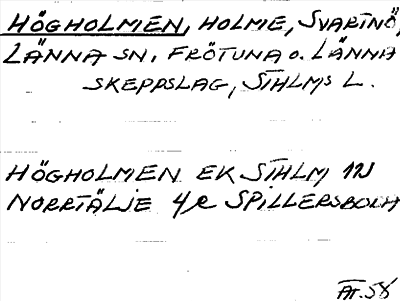 HÖGHOLMEN, HOLME, SVARTNÖ,
LÄNNA SN, FRÖTUNA O. LÄNNA
SKEPPSLAG, STHLMS L.
HÖGHOLMEN EK STHLM 12J
NORRTÄLJE 4/e SPILLERSBODA
ÄT. 58